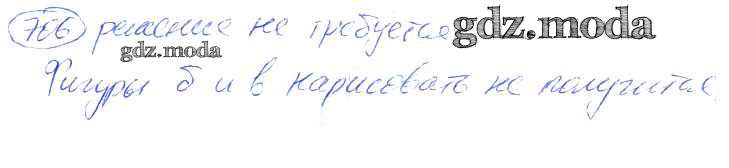 766 решение не требуется gdz.moda
gdz.moda
Фигуры б и в нарисовать не получится.